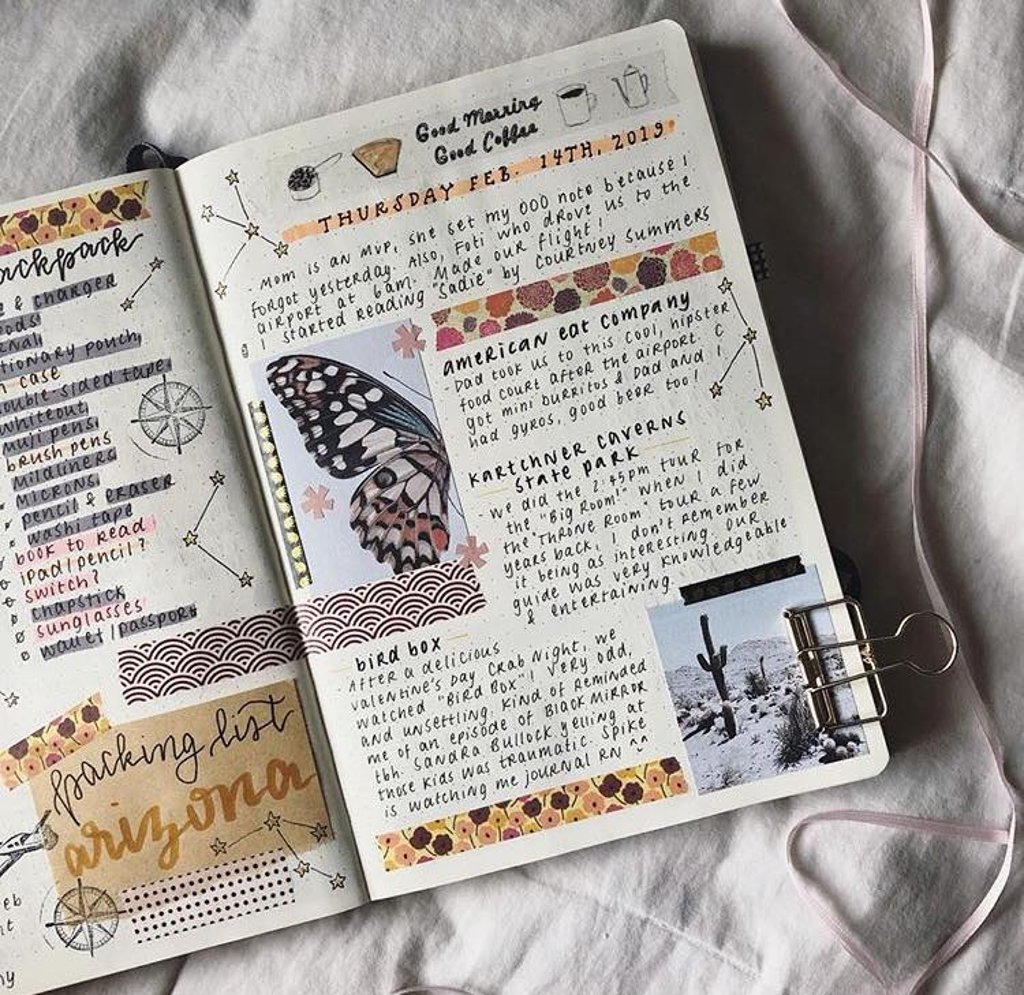 ackpack
e & charger
pods
rnal
tionary pouch
n case
double-sided tape
whiteout
muji pens
brush pens
mildliners
microns
pencil & eraser
washi tape
book to read
ipad/pencil?
switch?
chapstick
sunglasses
wallet/passport
packing list
arizona
eb
nt
ny
Good Morning
Good Coffee
THURSDAY FEB. 14TH, 2019
- Mom is an MVP, she set my OOO note because I
forgot yesterday. Also, Foti who drove us to the
airport at 6am. Made our flight!
I started reading "Sadie" by Courtney Summers
american eat company
- Dad took us to this cool, hipster
food court after the airport. C
got mini burritos & dad and I
had gyros, good beer too!
Kartchner Caverns
State Park
- We did the 2:45pm tour for
the "Big Room!" When I did
the "Throne Room" tour a few
years back, I don't remember
it being as interesting. Our
guide was very knowledgeable
& entertaining.
bird box
- After a delicious
Valentine's Day Crab Night, we
watched "Bird Box"! Very odd,
and unsettling. Kind of reminded
me of an episode of Black Mirror
tbh. Sandra Bullock yelling at
those kids was traumatic. Spike
is watching me journal rn ^^